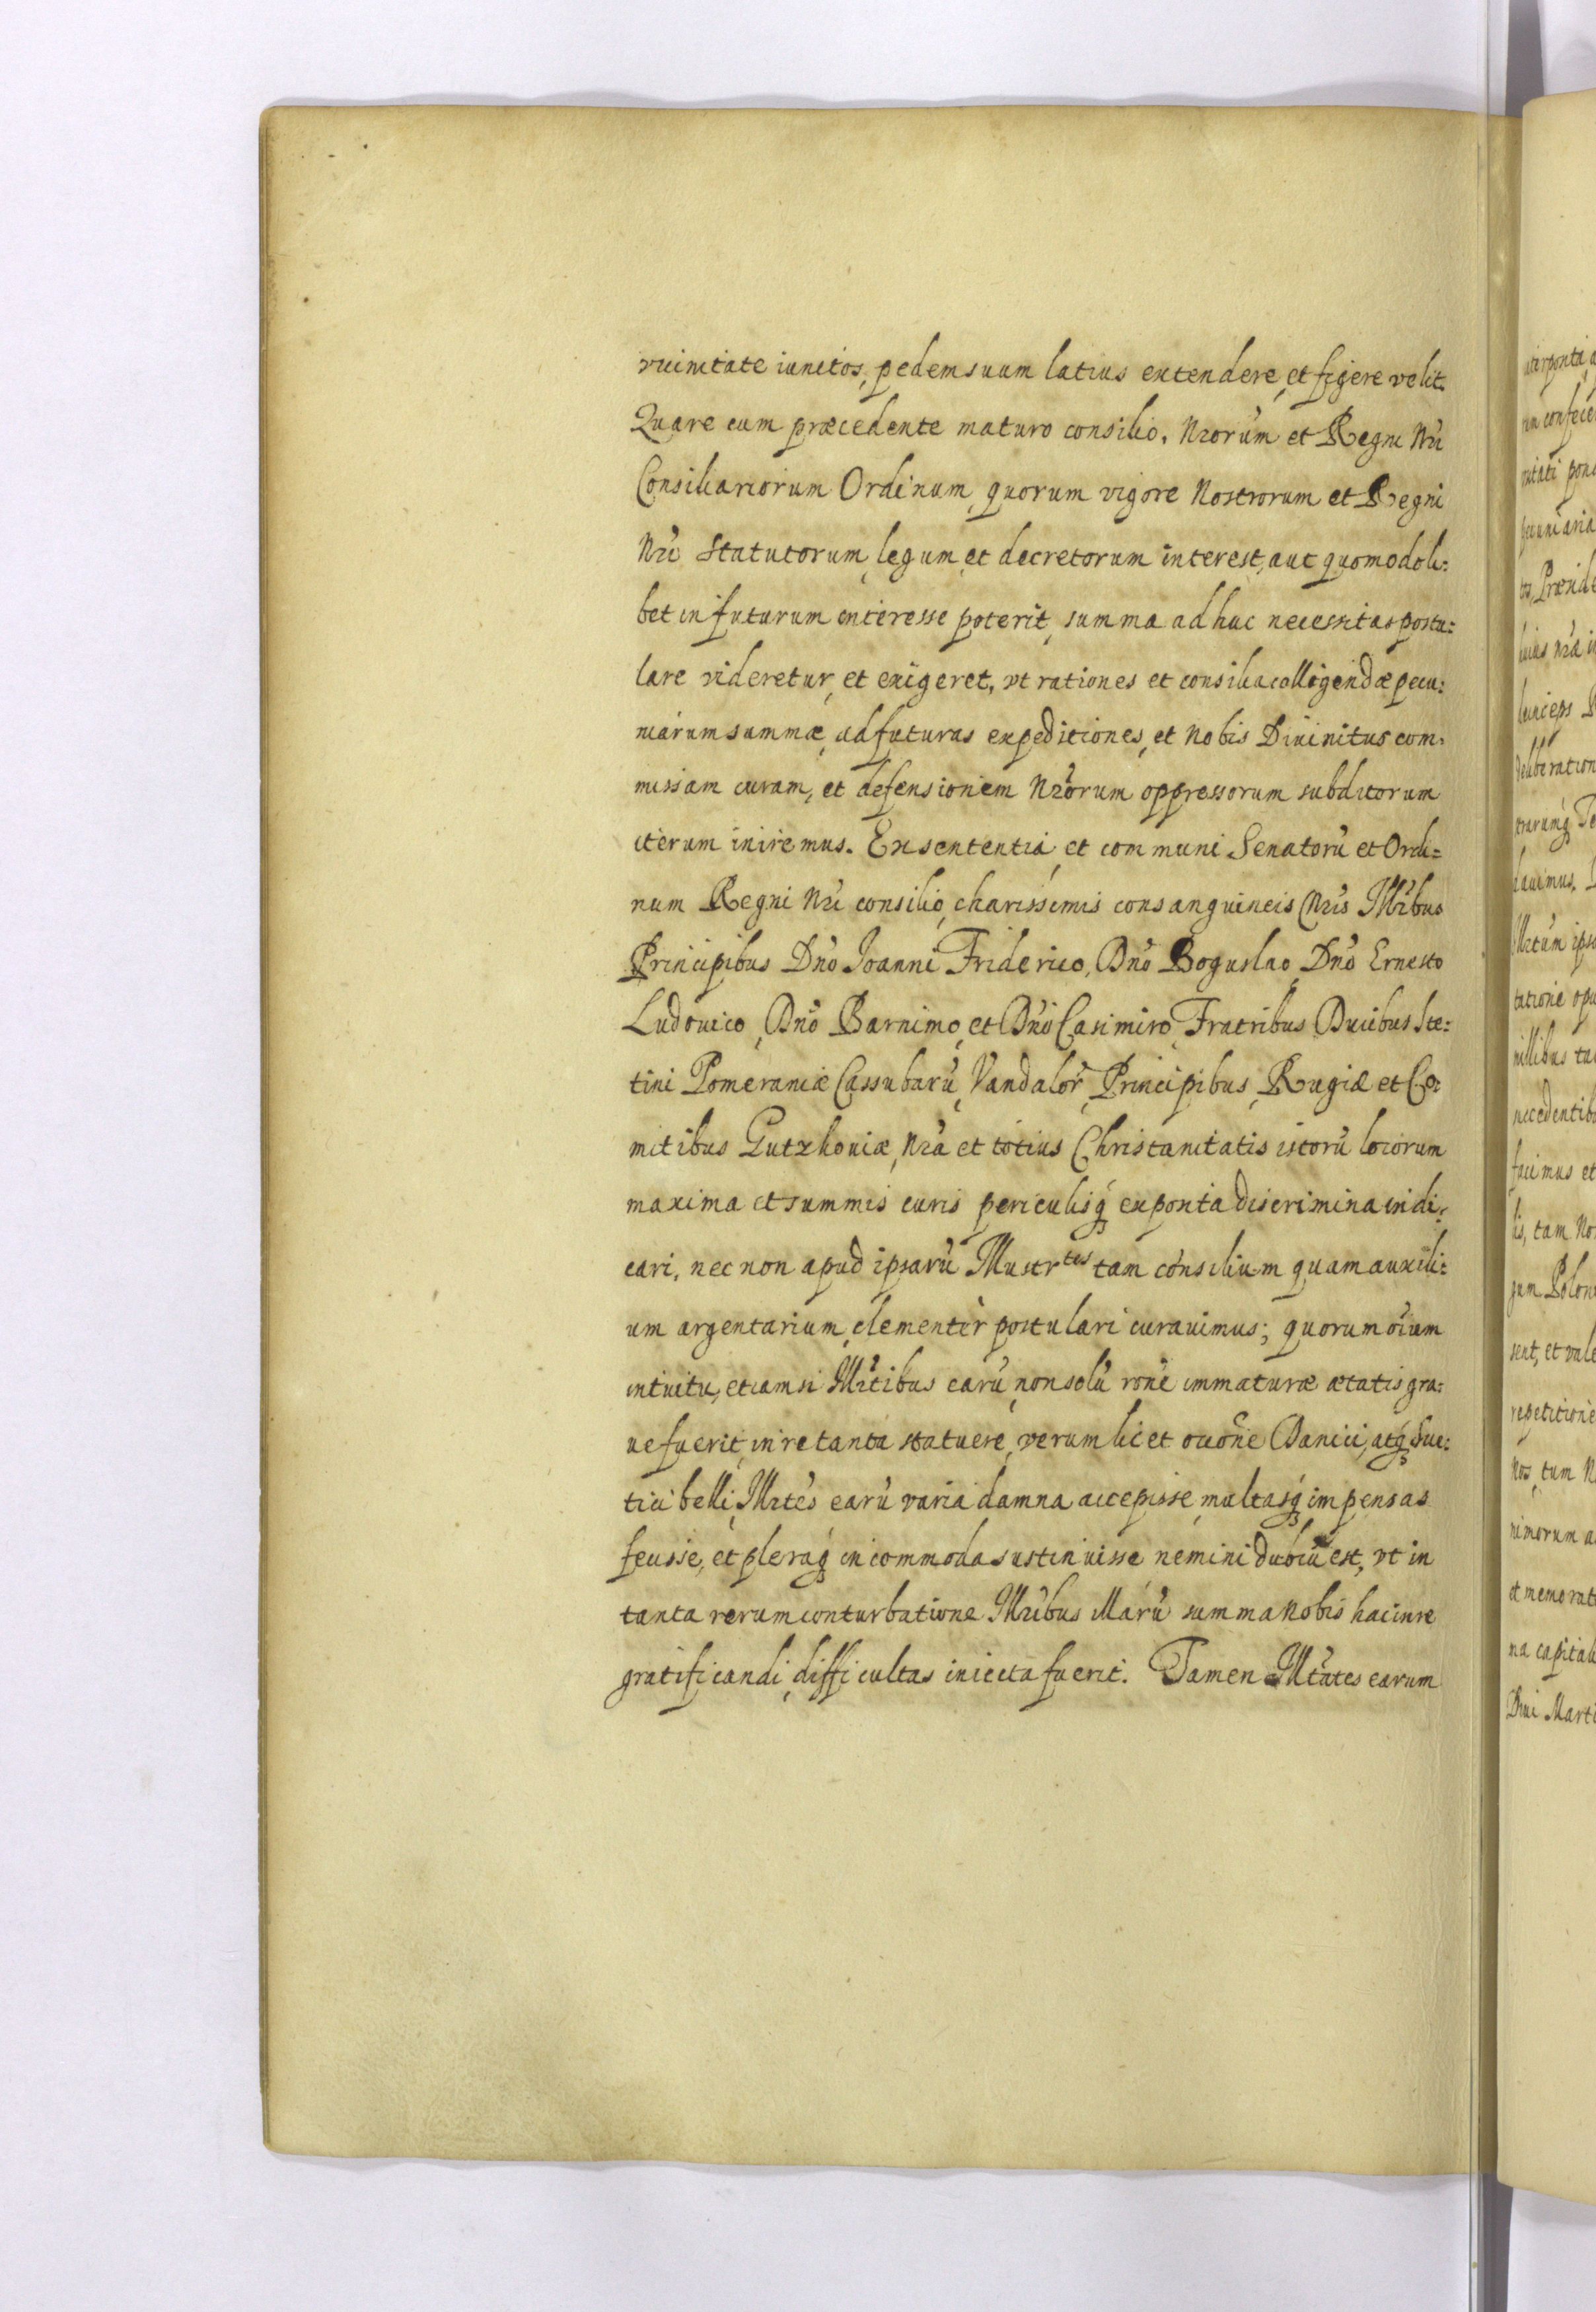 vicinitate iunctos, pedem suum latius extendere, et figere velit.
Quare cum præcedente maturo consilio, Nrorum et Regni Nri
Consiliariorum Ordinum, quorum vigore Nostrorum et Regni
Nri Statutorum, legum, et decretorum interest, aut quomodoli:
bet in futurum interesse poterit, summa ad huc necessitas postu:
lare videretur, et exigeret, vt rationes et consilia colligendæ pecu:
niarum summæ, ad futuras expeditiones, et Nobis Diuinitus com:
missam curam, et defensionem Nrorum oppressorum subditorum
iterum iniremus. Ex sententia, et communi Senatorũ et Ordi=
num Regni Nri consilio, charissimis consanguineis Nris Illribus
Principibus Dno Joanni Friderico, Dno Boguslao, Dno Ernesto
Ludouico, Dno Barnimo, et Dno Casimiro, Fratribus Ducibus Ste:
tini Pomeraniæ Cassubarũ, Vandalor, Principibus, Rugiæ et Co:
mitibus Gutzkouiæ, Nra et totius Christanitatis istorũ locorum
maxima et summis curis periculisq́ exposita discrimina indi:
cari, nec non apud ipsarũ Illustrtes tam consilium quam auxili:
um argentarium, clementer postulari curauimus; quorum oium
intuitu, etiamsi Illrtibus earũ, non solũ rone immaturæ ætatis gra:
ue fuerit, in re tanta statuere, verum licet occone Danici, atq́ Sue:
tici belli, Illrtes earũ varia damna accepisse, multasq́ impensas
fecisse, et pleraq́ incommoda sustinuisse nemini dubiũ est, vt in
tanta rerum conturbatione Illribus illarũ summa Nobis hac in re
gratificandi, difficultas iniecta fuerit. Tamen Illtates earum